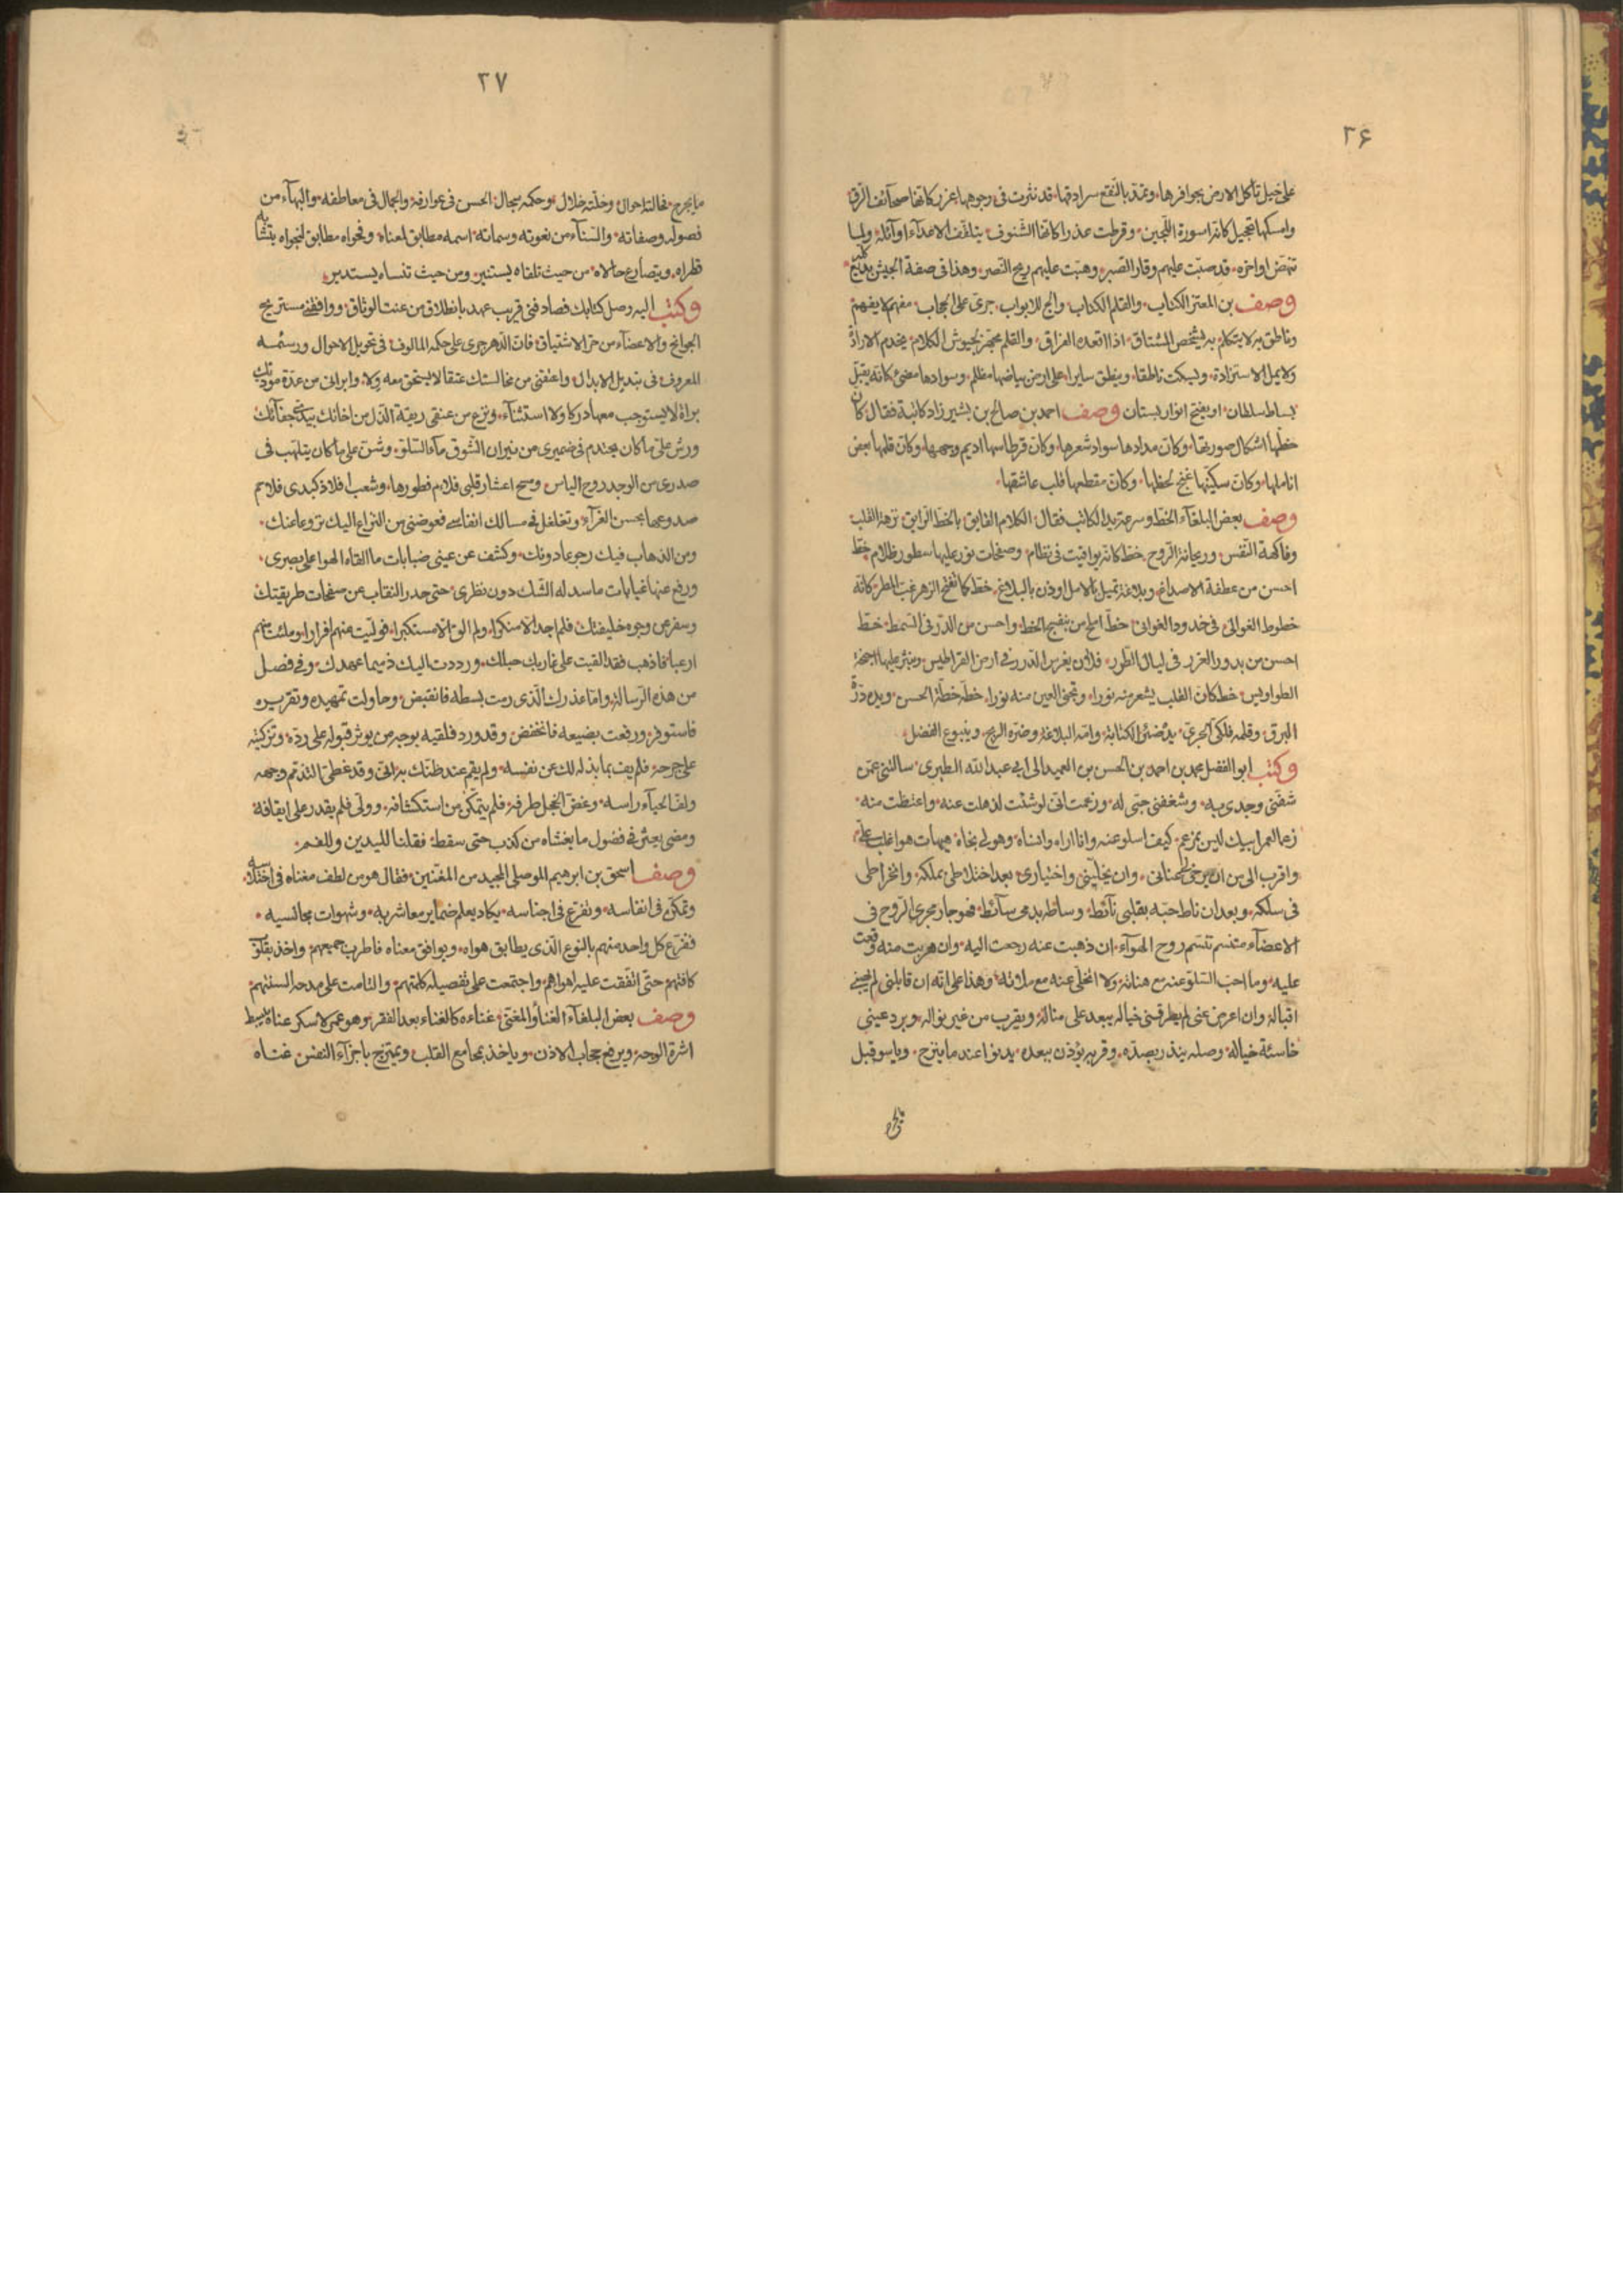 ٢۶
على خيل تأكل الارض بحوافرها وتمد بالنقع سرادقها قد نثرت فى وجوهها غرر كانها صحآئف الرق
وامسكها تحجيل كانه اسورة اللجين وقرطت عذرا كانها الشنوف يتلقف الاعدآء اوآئله ولما
تنهض اواخره قد صبّت عليهم وقار الصبر وهبّت عليهم ريح النصر وهذا فى صفة الجيش بديع
وصف بن المعتز الكتاب والقلم الكتاب والج للابواب جرىّ على الحجاب مفهم لا يفهم
وناطق به لا يتكلم به يشخص المشتاق اذا اقعده الفراق والقلم مجهز لجيوش الكلام يخدم الارادة
ولا يمل الاستزادة ويسكت ناطقا وينطق سايرا على ارض بياضها مظلم وسوادها مضئ كانه يقبل
بساط سلطان او يفتح انوار بستان وصف احمد بن صالح بن بشير زاد كاتبة فقال كان
خطها اشكال صورتها وكان مدادها سواد شعرها وكان قرطاسها اديم وجهها وكان قلمها بعض
اناملها وكان سكينها غنج لحظها وكان مقطعها قلب عاشقها
وصف بعض البلغآء الخط وسرعة يد الكاتب فقال الكلام الفايق بالخط الرايق نزهة القلب
وفاكهة النفس وريحانة الروح خط كانه يواقيت فى نظام وصفحات نور عليها سطور ظلام خط
احسن من عطفة الاصداغ وبلاغة تميل بالامل اوذن بالبلاغ خط كما تفتح الزهر غب المطر كانه
خطوط الغوالى فى خدود الغوانى خط املح من بنفسج الخط واحسن من الدّر فى السمط خط
احسن من بدور الغرر فى ليال الطرر فلان يغرس الدرر فى ارض القراطيس وينثر عليها اجنحة
الطواويس خط كان القلب يشعر منه نورا وتجنى العين منه نورا خطه خطة الحسن ويده درة
البرق وقلمه فلكى الجرى يده ضئر الكتابة وامه البلاغة وضرة الريح وينبوع الفضل
وكتب ابو الفضل محمد بن احمد بن الحسن بن العميد الى ابى عبد الله الطبرى سالتنى عمن
شفنى وجدى به وشغفنى حبى له وزعمت انى لو شئت لذهلت عنه واعتظت منه
زعما لعمر ابيك ليس بمزعم كيف اسلو عنه وانا اراه وانساه وهو لى تجاه هيهات هو اغلب علىّ
واقرب الى من ان يرخى لى عنانى وان يخلينى واختيارى بعد اختلاطى بملكه وانخراطى
فى سلكه وبعد ان ناط حبه بقلبى نآئط وساطه بدمى سآئط فهو جار مجرى الروح فى
الاعضآء متنسم تنسم روح الهوآء ان ذهبت عنه رجعت اليه وان هربت منه وقعت
عليه وما احب السلو عنه مع هناته ولا اتخلى عنه مع ملالته وهذا على انه ان قابلنى لم يجبنى
اقباله وان اعرض عنى لم يطرقنى خياله يبعد على مناله ويقرب من غيرى نواله ويرد عينى
خاسئة خياله وصله ينذر بصده وقربه يؤذن ببعده يدنوا عندما ينزح وياسو قبل
٢٧
ما يجرح مخالته احوال وخلته خلال وحكمه سجال الحسن فى عوارفه والجمال فى معاطفه والبهآء من
فصوله وصفاته والسنآء من نعوته وسماته اسمه مطابق لمعناه وفحواه مطابق لنجواه يتشابه
قطراه ويتصارع حالاه من حيث تلقاه يستنير ومن حيث تنساه يستدير
وكتب اليه وصل كتابك فصادفنى قريب عهد بانطلاق من عنت الوثاق ووافقنى مستريح
الجوانح والاعضآء من حر الاشتياق فان الدهر جرى على حكمه المالوف فى تحويل الاحوال ورسمه
المعروف فى تبديل الابدال واعتقنى من مخالستك عتقا لا يستحق معه ولا وابرانى من عدة مودتك
براة لا يستوجب معها دركا ولا استثنآء ونزع من عنقى ربقة الذل من اخائك بيدى جفآئك
ورش على ما كان يحتدم فى ضميرى من نيران الشوق مآء السلو وشن على ما كان يتلهب فى
صدرى من الوجد روح الياس ومسح اعشار قلبى فلائم فطورها وشعب افلاذ كبدى فلاحم
صدوعها بحسن العزآء وتغلغل فى مسالك انفاسى فعوضنى من النزاع اليك نزوعا عنك
ومن الذهاب فيك رجوعا دونك وكشف عن عينى ضبابات ما القاه الهوا على بصرى
ورفع عنها غيابات ما سدله الشك دون نظرى حتى حدر النقاب عن صفحات طريقتك
وسفر عن وجوه خليقتك فلم اجد الا منكرا ولم الق الا مستكبرا فوليت منهم فرارا وملئت منهم
ارعبا فاذهب فقد القيت على غاربك حبلك ورددت اليك ذميما عهدك وفى فصل
من هذه الرسالة واما عذرك الذى رمت بسطه فانقبض وحاولت تمهيده وتقريره
فاستوفز ورفعت بضيعه فانخفض وقد ورد فلقيه بوجه من يوثر قبوله على رده وتزكيته
على جرحه فلم يف بما بذله لك عن نفسه ولم يقم عند ظنك به انى وقد غطى التذمم وجهه
ولف الحيآء راسه وغض الخجل طرفه فلم يتمكن من استكشافه وولى فلم يقدر على ايقافه
ومضى يعثر فى فضول ما يغشاه من كذب حتى سقط فقلنا لليدين وللفم
وصف اسحق بن ابرهيم الموصلى المجيد من المغنين فقال هو من لطف معناه فى اختلاسه
وتمكن فى انفاسه وتفرع فى اجناسه يكاد يعلم ضماير معاشريه وشهوات مجالسيه
ففرع كل واحد منهم بالنوع الذى يطابق هواه ويوافق معناه فاطرب جميعهم واخذ بقلوب
كافتهم حتى اتفقت عليه اهواهم واجتمعت على تفصيله كلمتهم والتامت على مدحه السنتهم
وصف بعض البلغآء الغنآ والمغنى غناءه كالغناء بعد الفقر وهو عمر لا سكر غناه يبسط
اسرة الوجه ويرفع حجاب الاذن وياخذ بمجامع القلب ويمتزج باجزآء النفس غناه